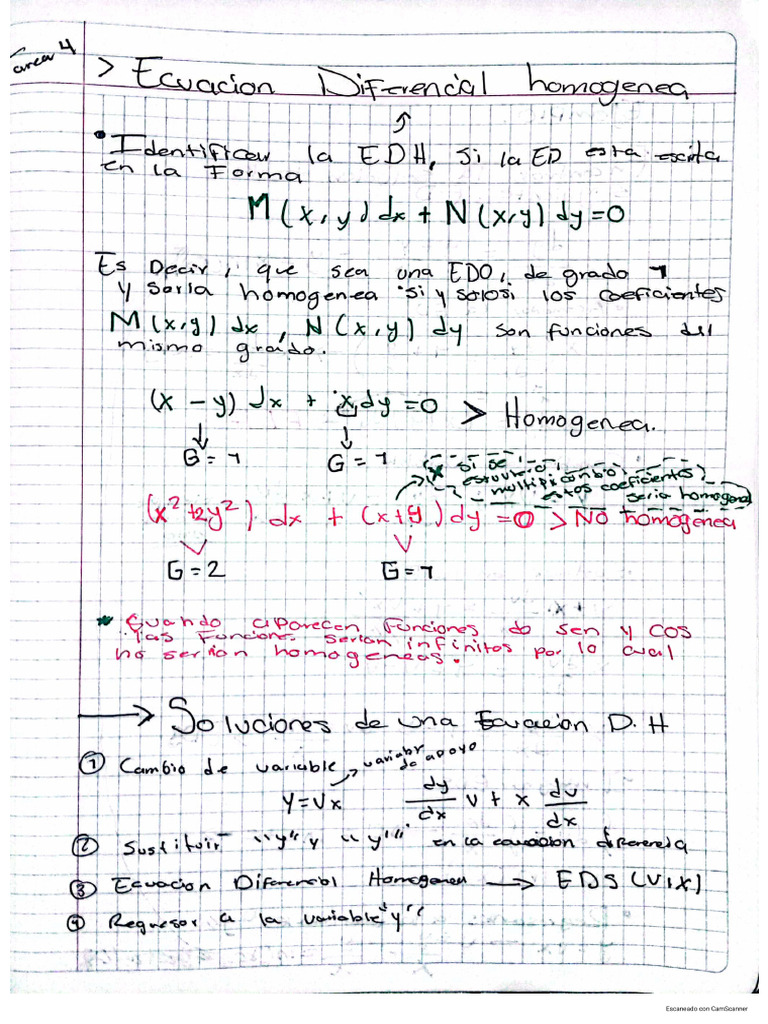 Tarea 4
> Ecuacion Diferencial homogenea
• Identificar la EDH, si la ED esta escrita
en la Forma
M(x,y) dx + N(x,y) dy = 0
Es Decir, que sea una EDO, de grado 1
y seria homogenea si y solo si los coeficientes
M(x,y) dx, N(x,y) dy son funciones del
mismo grado.
(x - y) dx + x dy = 0 > Homogenea.
G = 1 G = 1
* si se
estuvieran
multiplicando
estos coeficientes
seria homogenea
(x² + 2y²) dx + (x+y) dy = 0 > No homogenea
G = 2 G = 1
* Cuando aparecen funciones de sen y cos
las funciones serian infinitos por lo cual
no serian homogeneas.
→ Soluciones de una Ecuacion D.H
① Cambio de variable variable de apoyo
y = vx dy/dx v + x dv/dx
② Sustituir "y" y "y'" en la ecuacion diferencia
③ Ecuacion Diferencial Homogenea → EDS (V,X)
④ Regresar a la variable "y"
Escaneado con CamScanner